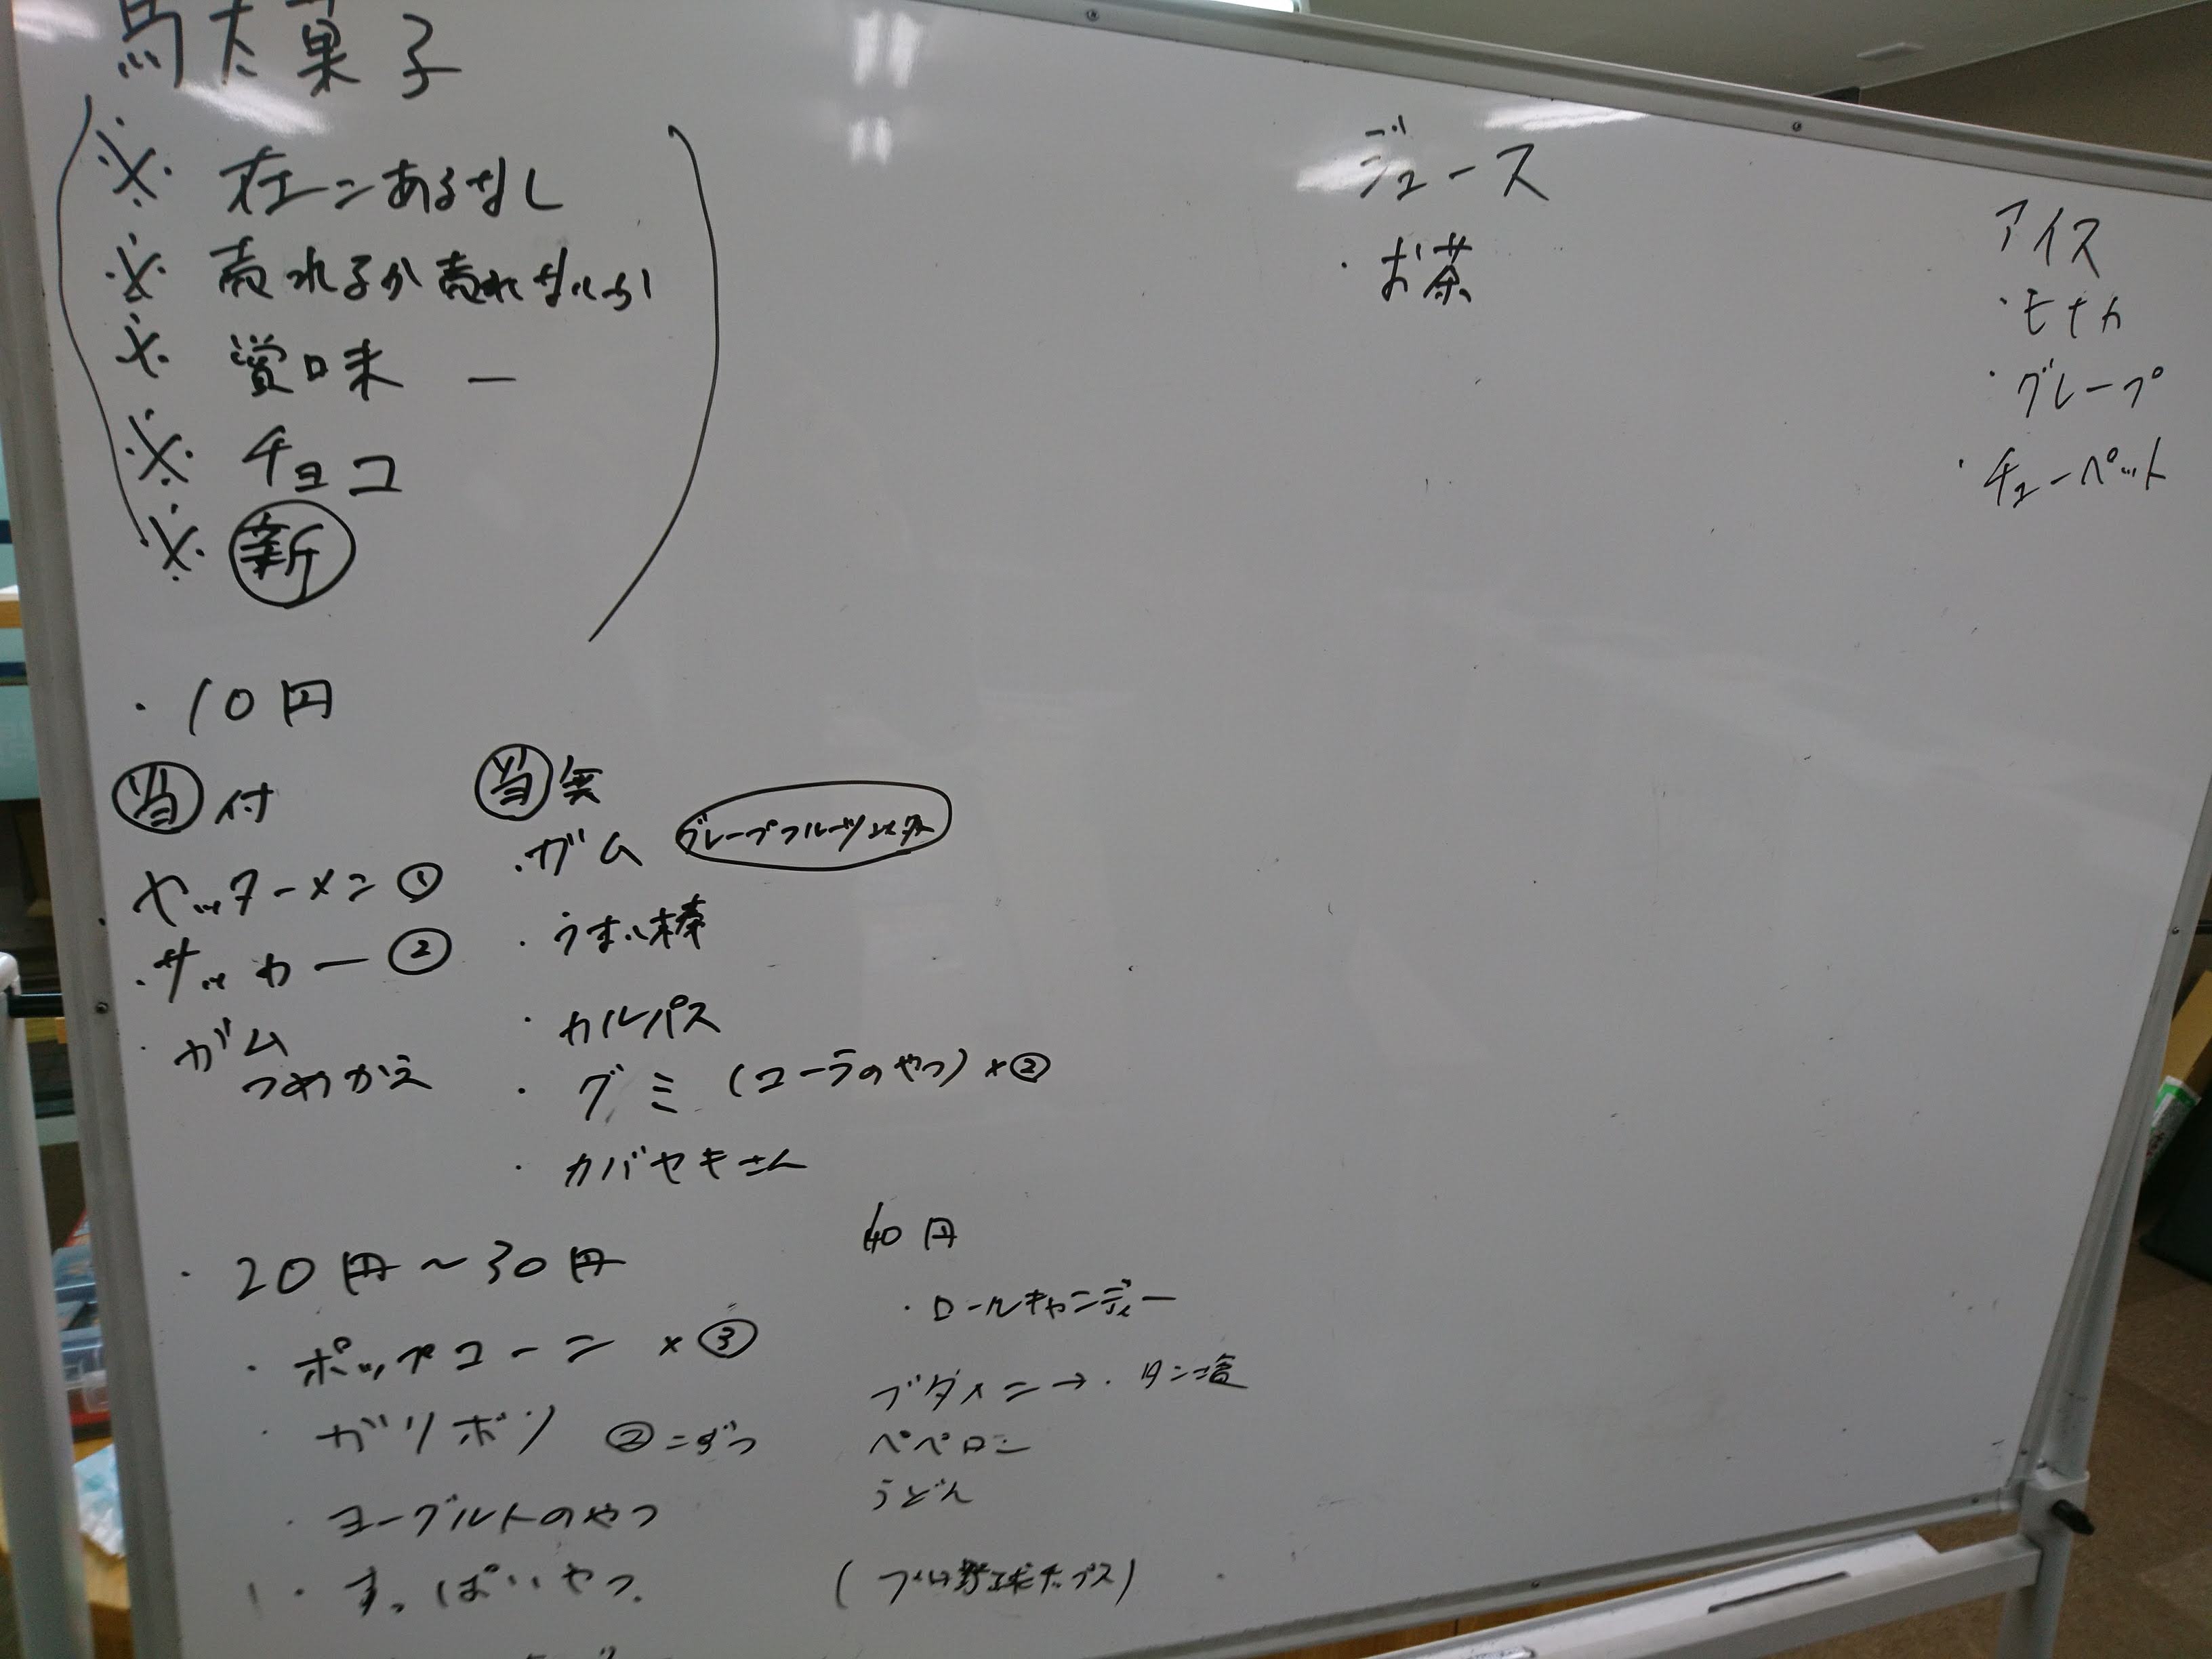 駄菓子
※ 在庫あるなし
※ 売れるか売れないか
※ 賞味 ー
※ チョコ
※ 新
・10円
当付
ヤッターメン ①
・サッカー ②
・ガム
つめかえ
当無
・ガム グレープフルーツ以外
・うまい棒
・カルパス
・グミ (コーラのやつ) ×②
・カバヤキさん
・20円～30円
・ポップコーン ×③
・ガリボリ ②こずつ
・ヨーグルトのやつ
・すっぱいやつ
40円
・ロールキャンディー
ブタメン→・タン塩
ペペロン
うどん
(プロ野球チップス)
ジュース
・お茶
アイス
・モナカ
・グレープ
・チューペット